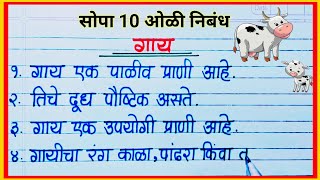 सोपा 10 ओळी निबंध
गाय
१. गाय एक पाळीव प्राणी आहे.
२. तिचे दूध पौष्टिक असते.
३. गाय एक उपयोगी प्राणी आहे.
४. गायीचा रंग काळा, पांढरा किंवा त